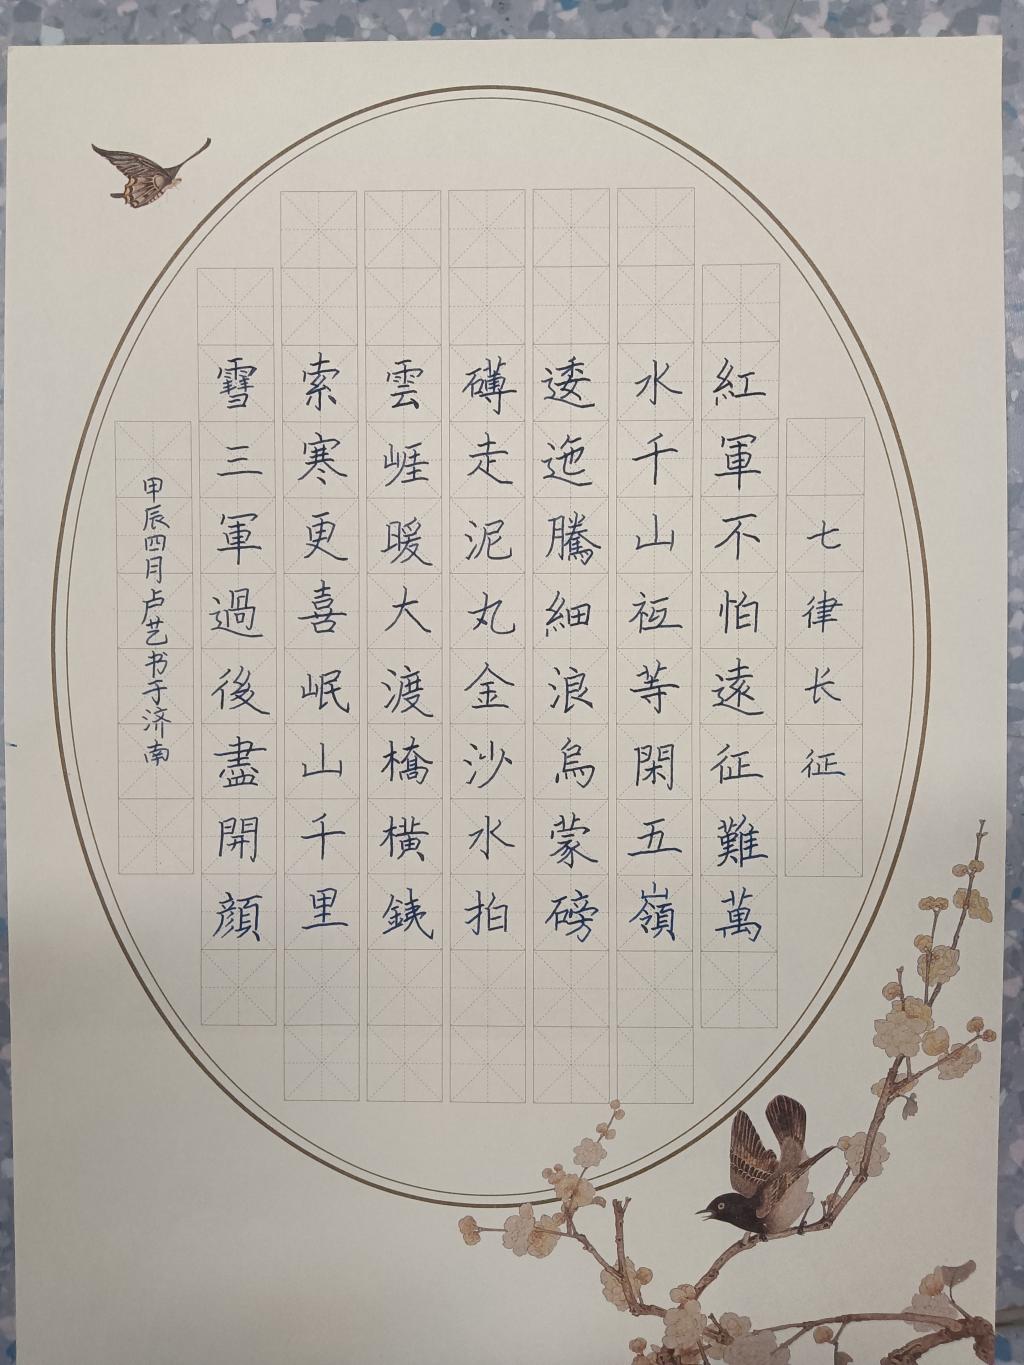 七律长征
紅軍不怕遠征難萬
水千山衹等閑五嶺
逶迤騰細浪烏蒙磅
礡走泥丸金沙水拍
雲崕暖大渡橋橫銕
索寒更喜岷山千里
雪三軍過後盡開顔
甲辰四月卢艺书于济南